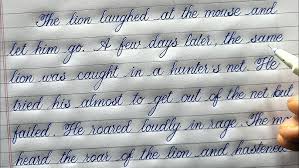 The lion laughed at the mouse and
let him go. A few days later, the same
lion was caught in a hunter's net. He
tried his almost to get out of the net but
failed. He roared loudly in rage. The mo
heard the roar of the lion and hastened